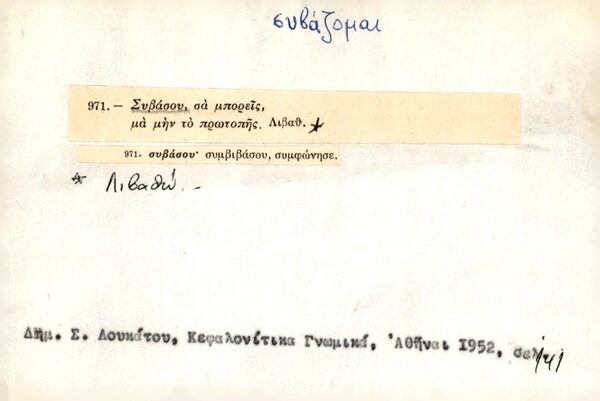 συβάζομαι
971.— Συβάσου, σὰ μπορεῖς,
μὰ μὴν τὸ πρωτοπῆς. Λιβαθ. *
971. συβάσου· συμβιβάσου, συμφώνησε.
* Λιβαθώ. –
Δημ. Σ. Λουκάτου, Κεφαλονίτικα Γνωμικά, Ἀθῆναι 1952, σελ. 141